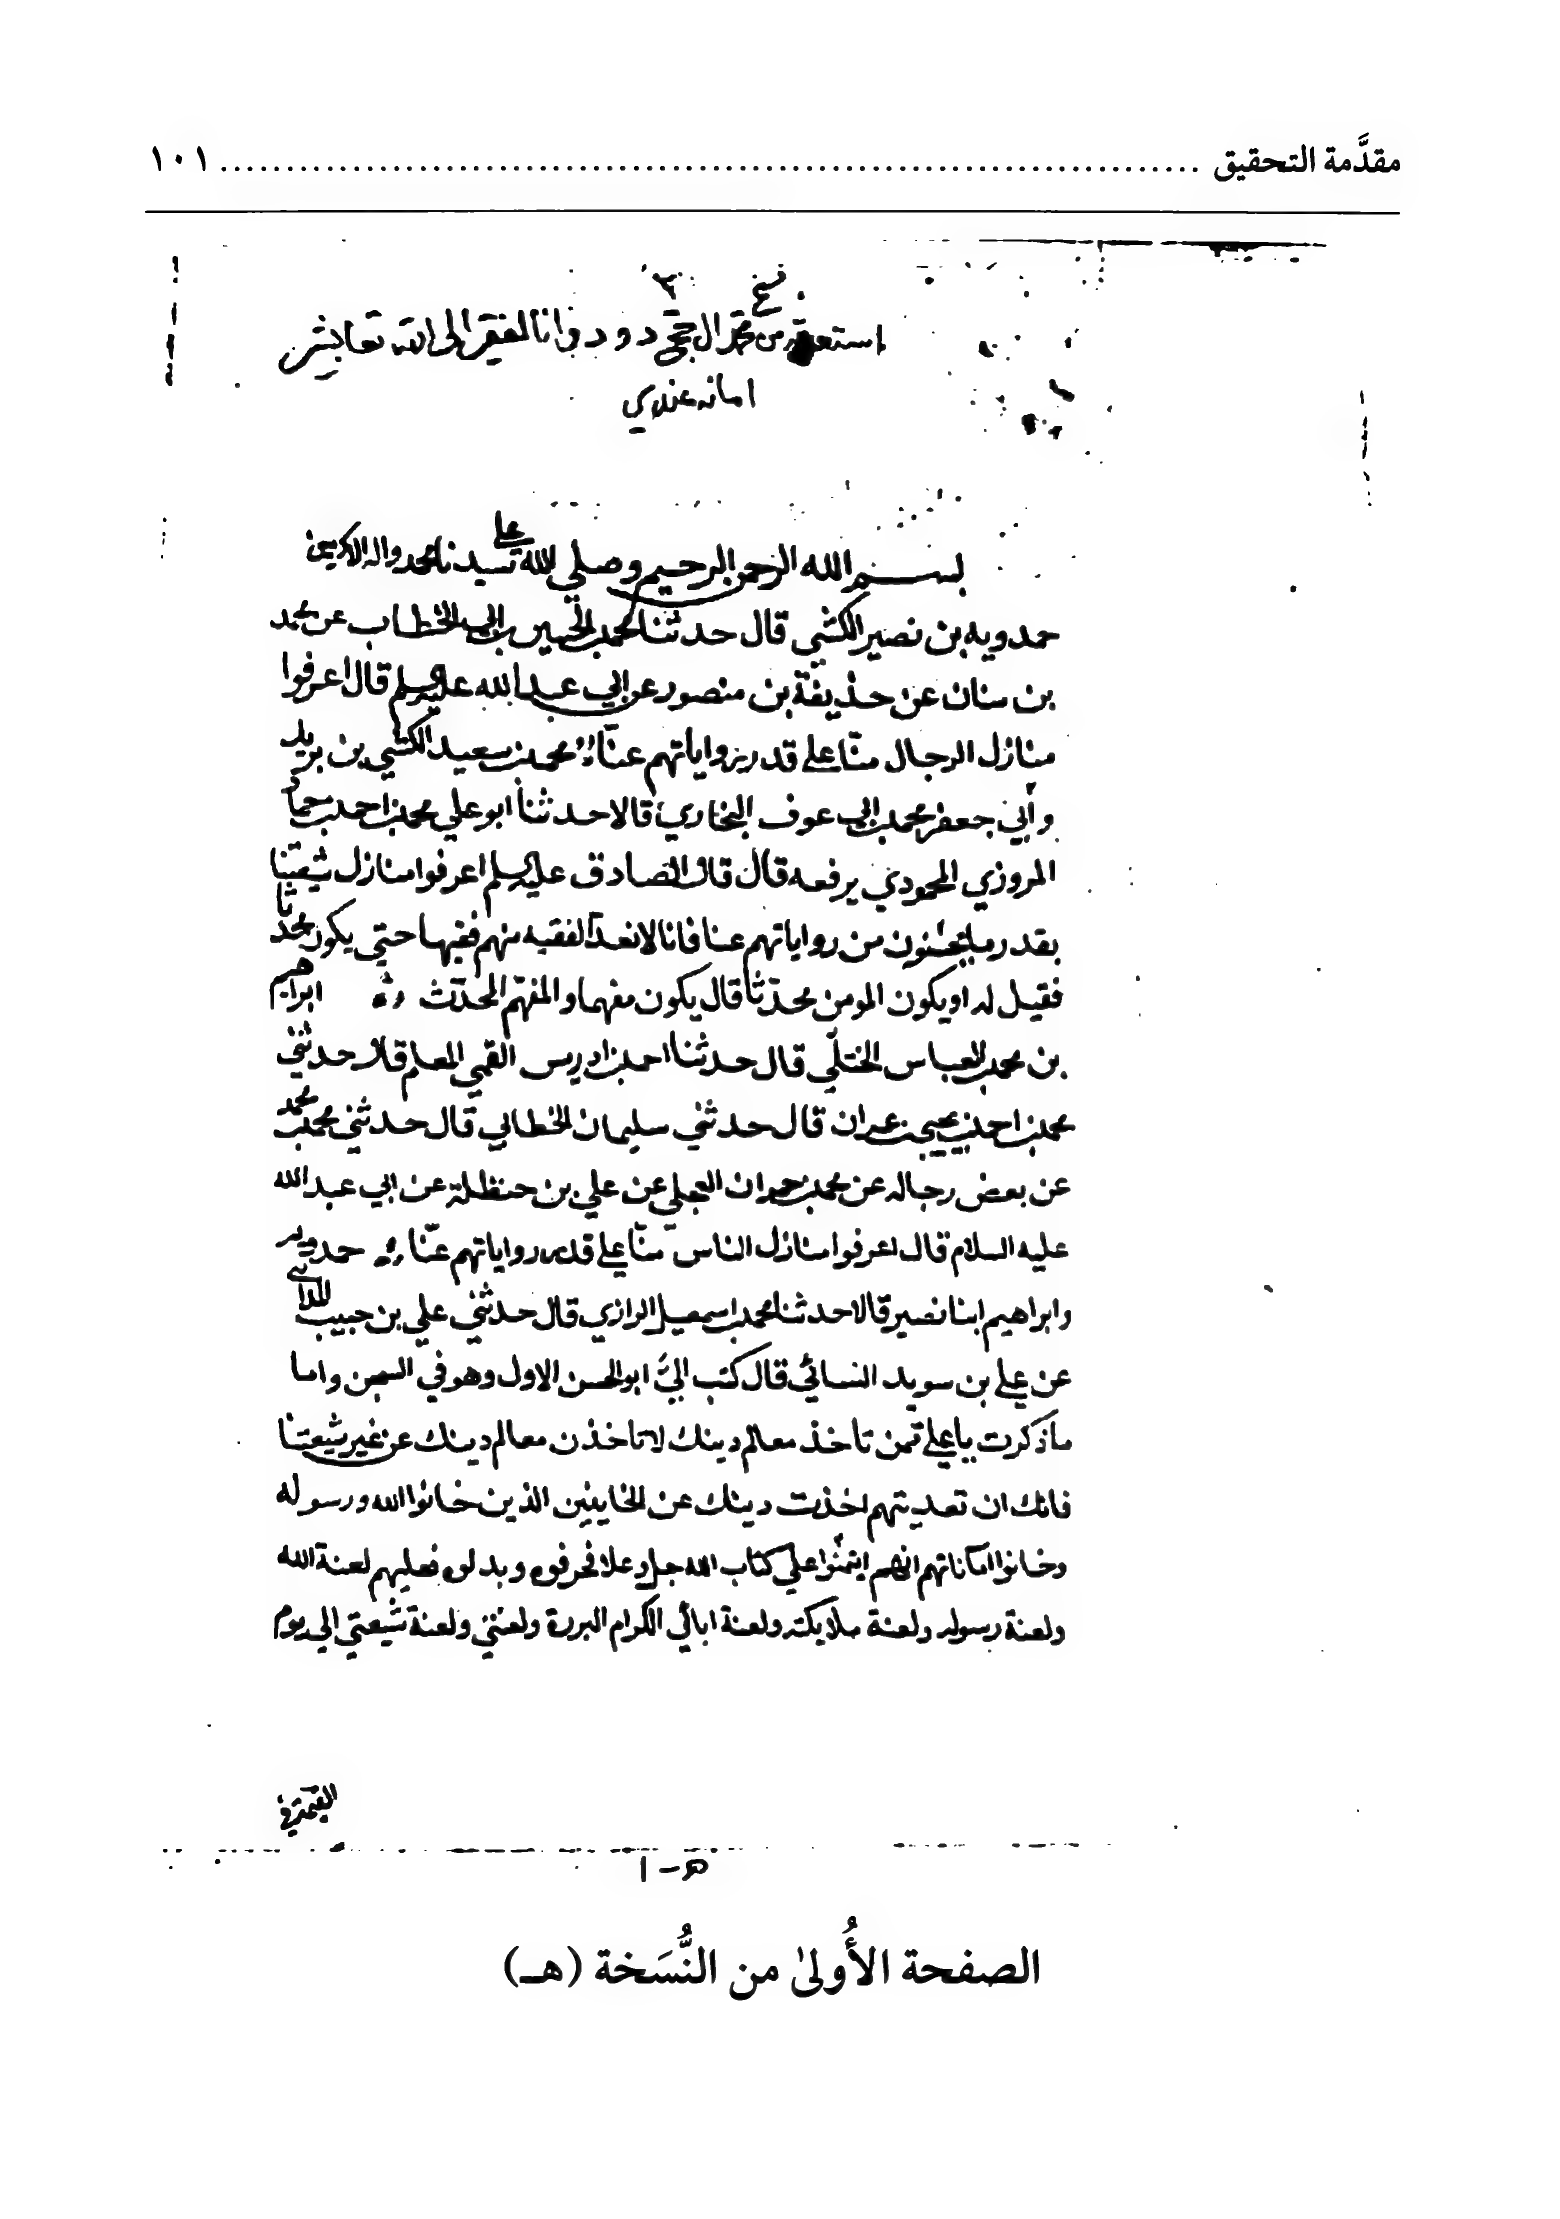 مقدَّمة التحقيق ........................................................................ ١٠١
امانه عندي
بسم الله الرحمن الرحيم وصلي الله علي سيدنا محمد واله الاكرمين
حمدويه بن نصير الكشي قال حدثنا محمد بن الحسين بن ابي الخطاب عن محمد
بن سنان عن حذيفة بن منصور عن ابي عبد الله عليه السلم قال اعرفوا
منازل الرجال منّا علي قدر رواياتهم عنّا محمد بن سعيد الكشي بن يزيد
وأبي جعفر محمد بن ابي عوف البخاري قالا حدثنا ابو علي محمد بن احمد بن حماد
المروزي المحمودي يرفعه قال قال الصادق عليه السلم اعرفوا منازل شيعتنا
بقدر ما يحسنون من رواياتهم عنا فانا لا نعدّ الفقيه منهم فقيها حتي يكون محدثا
فقيل له او يكون المومن محدّثا قال يكون مفهما والمفهّم المحدّث ابراهيم
بن محمد بن العباس الختلّي قال حدثنا احمد بن ادريس القمي المعلم قال حدثني
محمد بن احمد بن يحيي بن عمران قال حدثني سليمان الخطابي قال حدثني محمد بن محمد
عن بعض رجاله عن محمد بن حمران العجلي عن علي بن حنظلة عن ابي عبد الله
عليه السلام قال اعرفوا منازل الناس منّا علي قدر رواياتهم عنّا حمدويه
وابراهيم ابنا نصير قالا حدثنا محمد بن اسمعيل الرازي قال حدثني علي بن حبيب المدايني
عن علي بن سويد النسائي قال كتب اليّ ابو الحسن الاول وهو في السجن واما
ما ذكرت يا علي ممن تاخذ معالم دينك لا تاخذن معالم دينك عن غير شيعتنا
فانك ان تعديتهم اخذت دينك عن الخاينين الذين خانوا الله ورسوله
وخانوا اماناتهم انهم ايتمنوا علي كتاب الله جل وعلا فحرفوه وبدلوه فعليهم لعنة الله
ولعنة رسوله ولعنة ملايكته ولعنة ابائي الكرام البررة ولعنتي ولعنة شيعتي الي يوم
القيمة في
هـ - ١
الصفحة الأُولىٰ من النُّسَخة (هـ)